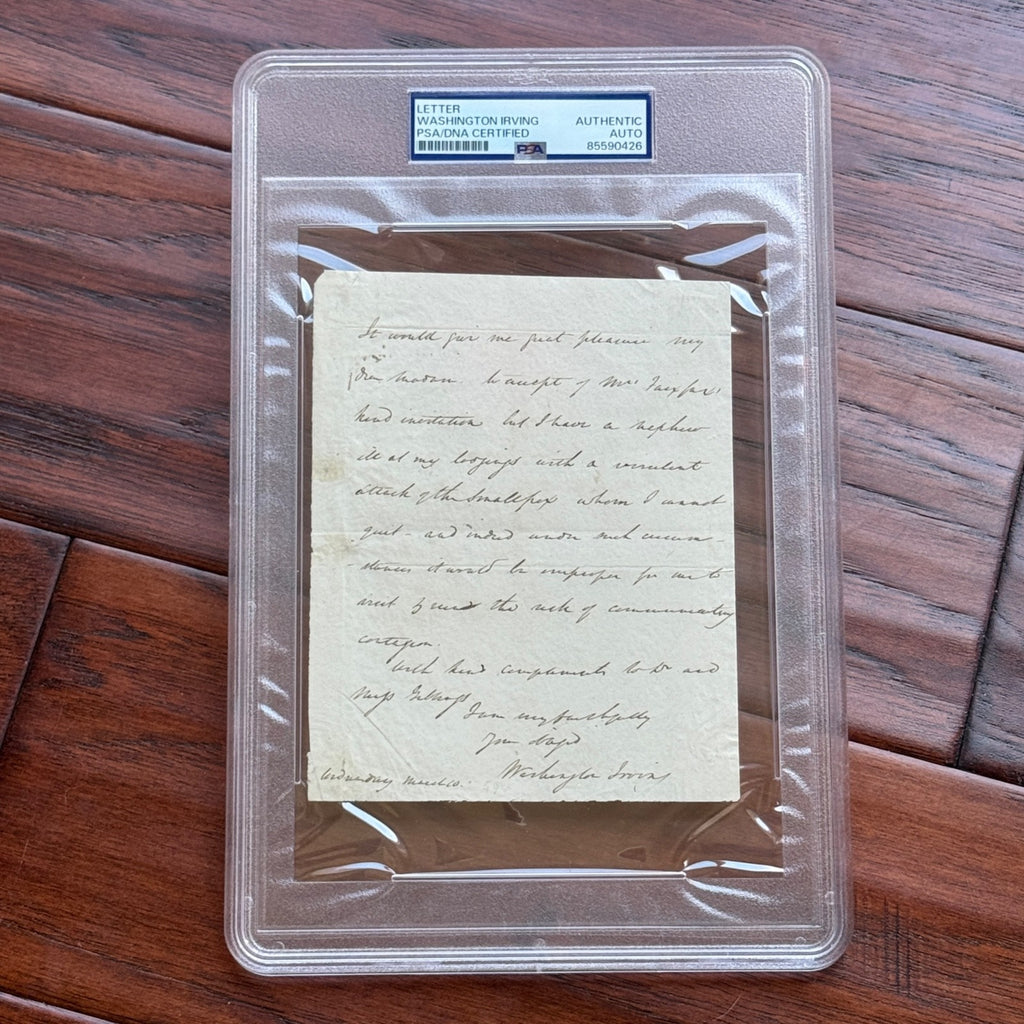 LETTER
WASHINGTON IRVING
PSA/DNA CERTIFIED
AUTHENTIC
AUTO
85590426
PSA
It would give me great pleasure my
dear madam to accept of Mrs Fairfax's
kind invitation but I have a nephew
ill at my lodgings with a virulent
attack of the Small pox whom I cannot
quit - and indeed under such circum-
-stances it would be improper for me to
visit & run the risk of communicating
contagion.
With kind compliments to Dr and
Miss
I am very faithfully
Your
Washington Irving
Wednesday March